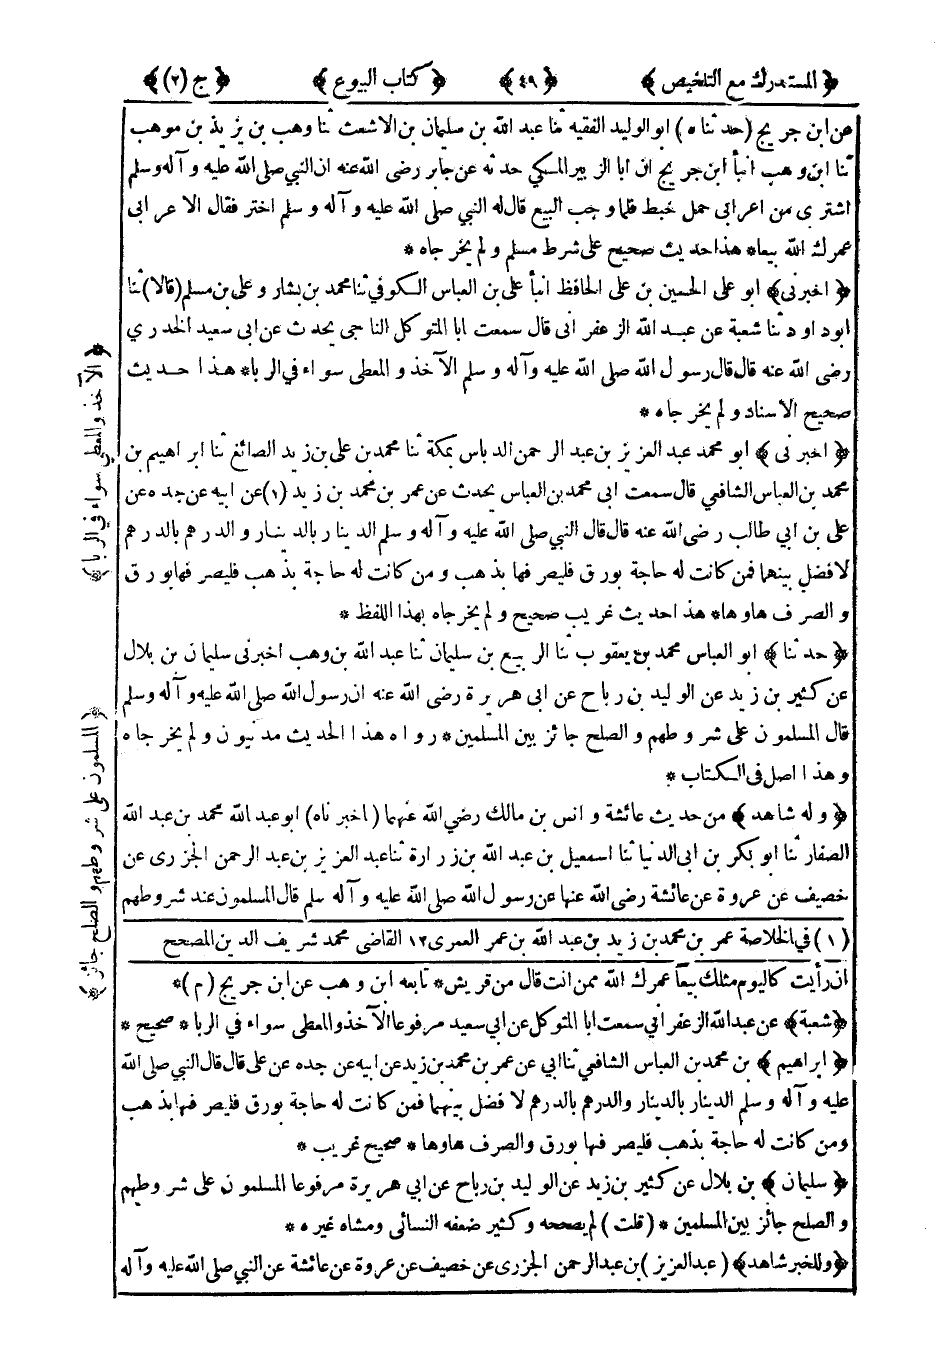 ﴿ المستدرك مع التلخيص ﴾ ﴿ ٤٩ ﴾ ﴿ كتاب البيوع ﴾ ﴿ ج (٢) ﴾
عن ابن جريج (حدثناه) ابو الوليد الفقيه ثنا عبد الله بن سليمان بن الاشعث ثنا وهب بن يزيد بن موهب
ثنا ابن وهب انبأ ابن جريج ان ابا الزبير المكي حدثه عن جابر رضى الله عنه ان النبي صلى الله عليه وآله وسلم
اشترى من اعرابى حمل خبط فلما وجب البيع قال له النبي صلى الله عليه وآله وسلم اختر فقال الاعرابى
عمرك الله بيعا * هذا حديث صحيح على شرط مسلم ولم يخرجاه *
﴿ اخبرني ﴾ ابو على الحسين بن على الحافظ انبأ على بن العباس الكوفي ثنا محمد بن بشار وعلى بن مسلم (قالا) ثنا
ابو داود ثنا شعبة عن عبد الله الزعفرانى قال سمعت ابا المتوكل الناجى يحدث عن ابى سعيد الخدري
رضى الله عنه قال قال رسول الله صلى الله عليه وآله وسلم الآخذ والمعطى سواء في الربا * هذا حديث
صحيح الاسناد ولم يخرجاه *
﴿ اخبرنى ﴾ ابو محمد عبد العزيز بن عبد الرحمن الدباس بمكة ثنا محمد بن على بن زيد الصائغ ثنا ابراهيم بن
محمد بن العباس الشافعي قال سمعت ابى محمد بن العباس يحدث عن عمر بن محمد بن زيد (١) عن ابيه عن جده عن
على بن ابي طالب رضى الله عنه قال قال النبي صلى الله عليه وآله وسلم الدينار بالدينار والدرهم بالدرهم
لا فضل بينهما فمن كانت له حاجة بورق فليصرفها بذهب ومن كانت له حاجة بذهب فليصرفها بورق
والصرف هاوها * هذا حديث غريب صحيح ولم يخرجاه بهذا اللفظ *
﴿ حدثنا ﴾ ابو العباس محمد بن يعقوب ثنا الربيع بن سليمان ثنا عبد الله بن وهب اخبرنى سليمان بن بلال
عن كثير بن زيد عن الوليد بن رباح عن ابى هريرة رضى الله عنه ان رسول الله صلى الله عليه وآله وسلم
قال المسلمون على شروطهم والصلح جائز بين المسلمين * رواة هذا الحديث مدنيون ولم يخرجاه
وهذا اصل فى الكتاب *
﴿ وله شاهد ﴾ من حديث عائشة وانس بن مالك رضي الله عنهما (اخبرناه) ابو عبد الله محمد بن عبد الله
الصفار ثنا ابو بكر بن ابى الدنيا ثنا اسمعيل بن عبد الله بن زرارة ثنا عبد العزيز بن عبد الرحمن الجزرى عن
خصيف عن عروة عن عائشة رضى الله عنها عن رسول الله صلى الله عليه وآله سلم قال المسلمون عند شروطهم
(١) في الخلاصة عمر بن محمد بن زيد بن عبد الله بن عمر العمرى ١٢ القاضى محمد شريف الدين المصحح
ان رأيت كاليوم مثلك بيعاً عمرك الله ممن انت قال من قريش * تابعه ابن وهب عن ابن جريج (م) *
﴿ شعبة ﴾ عن عبد الله الزعفرانى سمعت ابا المتوكل عن ابي سعيد مرفوعا الآخذ والمعطى سواء في الربا * صحيح *
﴿ ابراهيم ﴾ بن محمد بن العباس الشافعي ثنا ابي عن عمر بن محمد بن زيد عن ابيه عن جده عن على قال قال النبي صلى الله
عليه وآله وسلم الدينار بالدينار والدرهم بالدرهم لا فضل بينهما فمن كانت له حاجة بورق فليصرفها بذهب
ومن كانت له حاجة بذهب فليصرفها بورق والصرف هاوها * صحيح غريب *
﴿ سليمان ﴾ بن بلال عن كثير بن زيد عن الوليد بن رباح عن ابي هريرة مرفوعا المسلمون على شروطهم
والصلح جائز بين المسلمين * (قلت) لم يصححه وكثير ضعفه النسائى ومشاه غيره *
﴿ وللخبر شاهد ﴾ (عبد العزيز) بن عبد الرحمن الجزرى عن خصيف عن عروة عن عائشة عن النبي صلى الله عليه وآله
﴿ الآخذ والمعطى سواء في الربا ﴾
﴿ المسلمون على شروطهم والصلح جائز ﴾